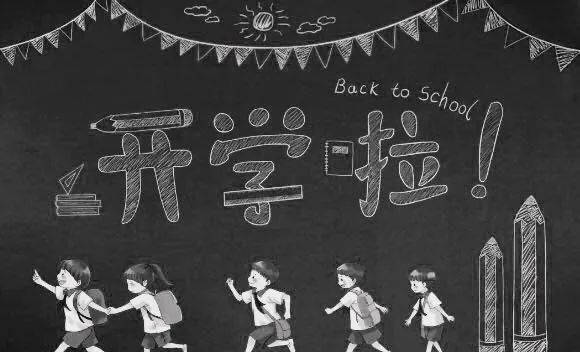 Back to School
开学啦!